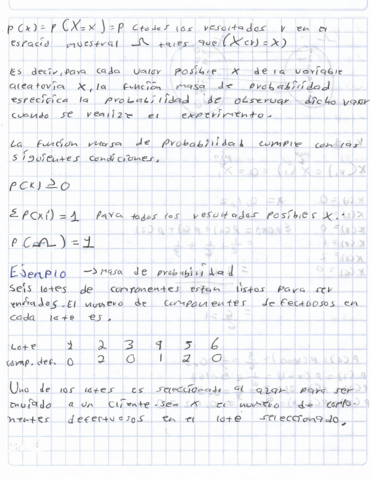 P(x) = P(X=x) = P (todos los resultados r en el
espacio muestral Ω tales que (X(r) = x)
Es decir, para cada valor posible x de la variable
aleatoria X, la función masa de probabilidad
especifica la probabilidad de observar dicho valor
cuando se realize el experimento.
La funcion masa de probabilidad cumple con las
siguientes condiciones.
P(x) ≥ 0
Σ P(xi) = 1 para todos los resultados posibles X.
P(Ω) = 1
Ejemplo → masa de probabilidad
Seis lotes de componentes estan listos para ser
enviados. El numero de componentes defectuosos en
cada lote es.
Lote 1 2 3 4 5 6
comp. def. 0 2 0 1 2 0
Uno de los lotes es seleccionado al azar para ser
enviado a un cliente. sea X el numero de compo-
nentes defectuosos en el lote seleccionado.